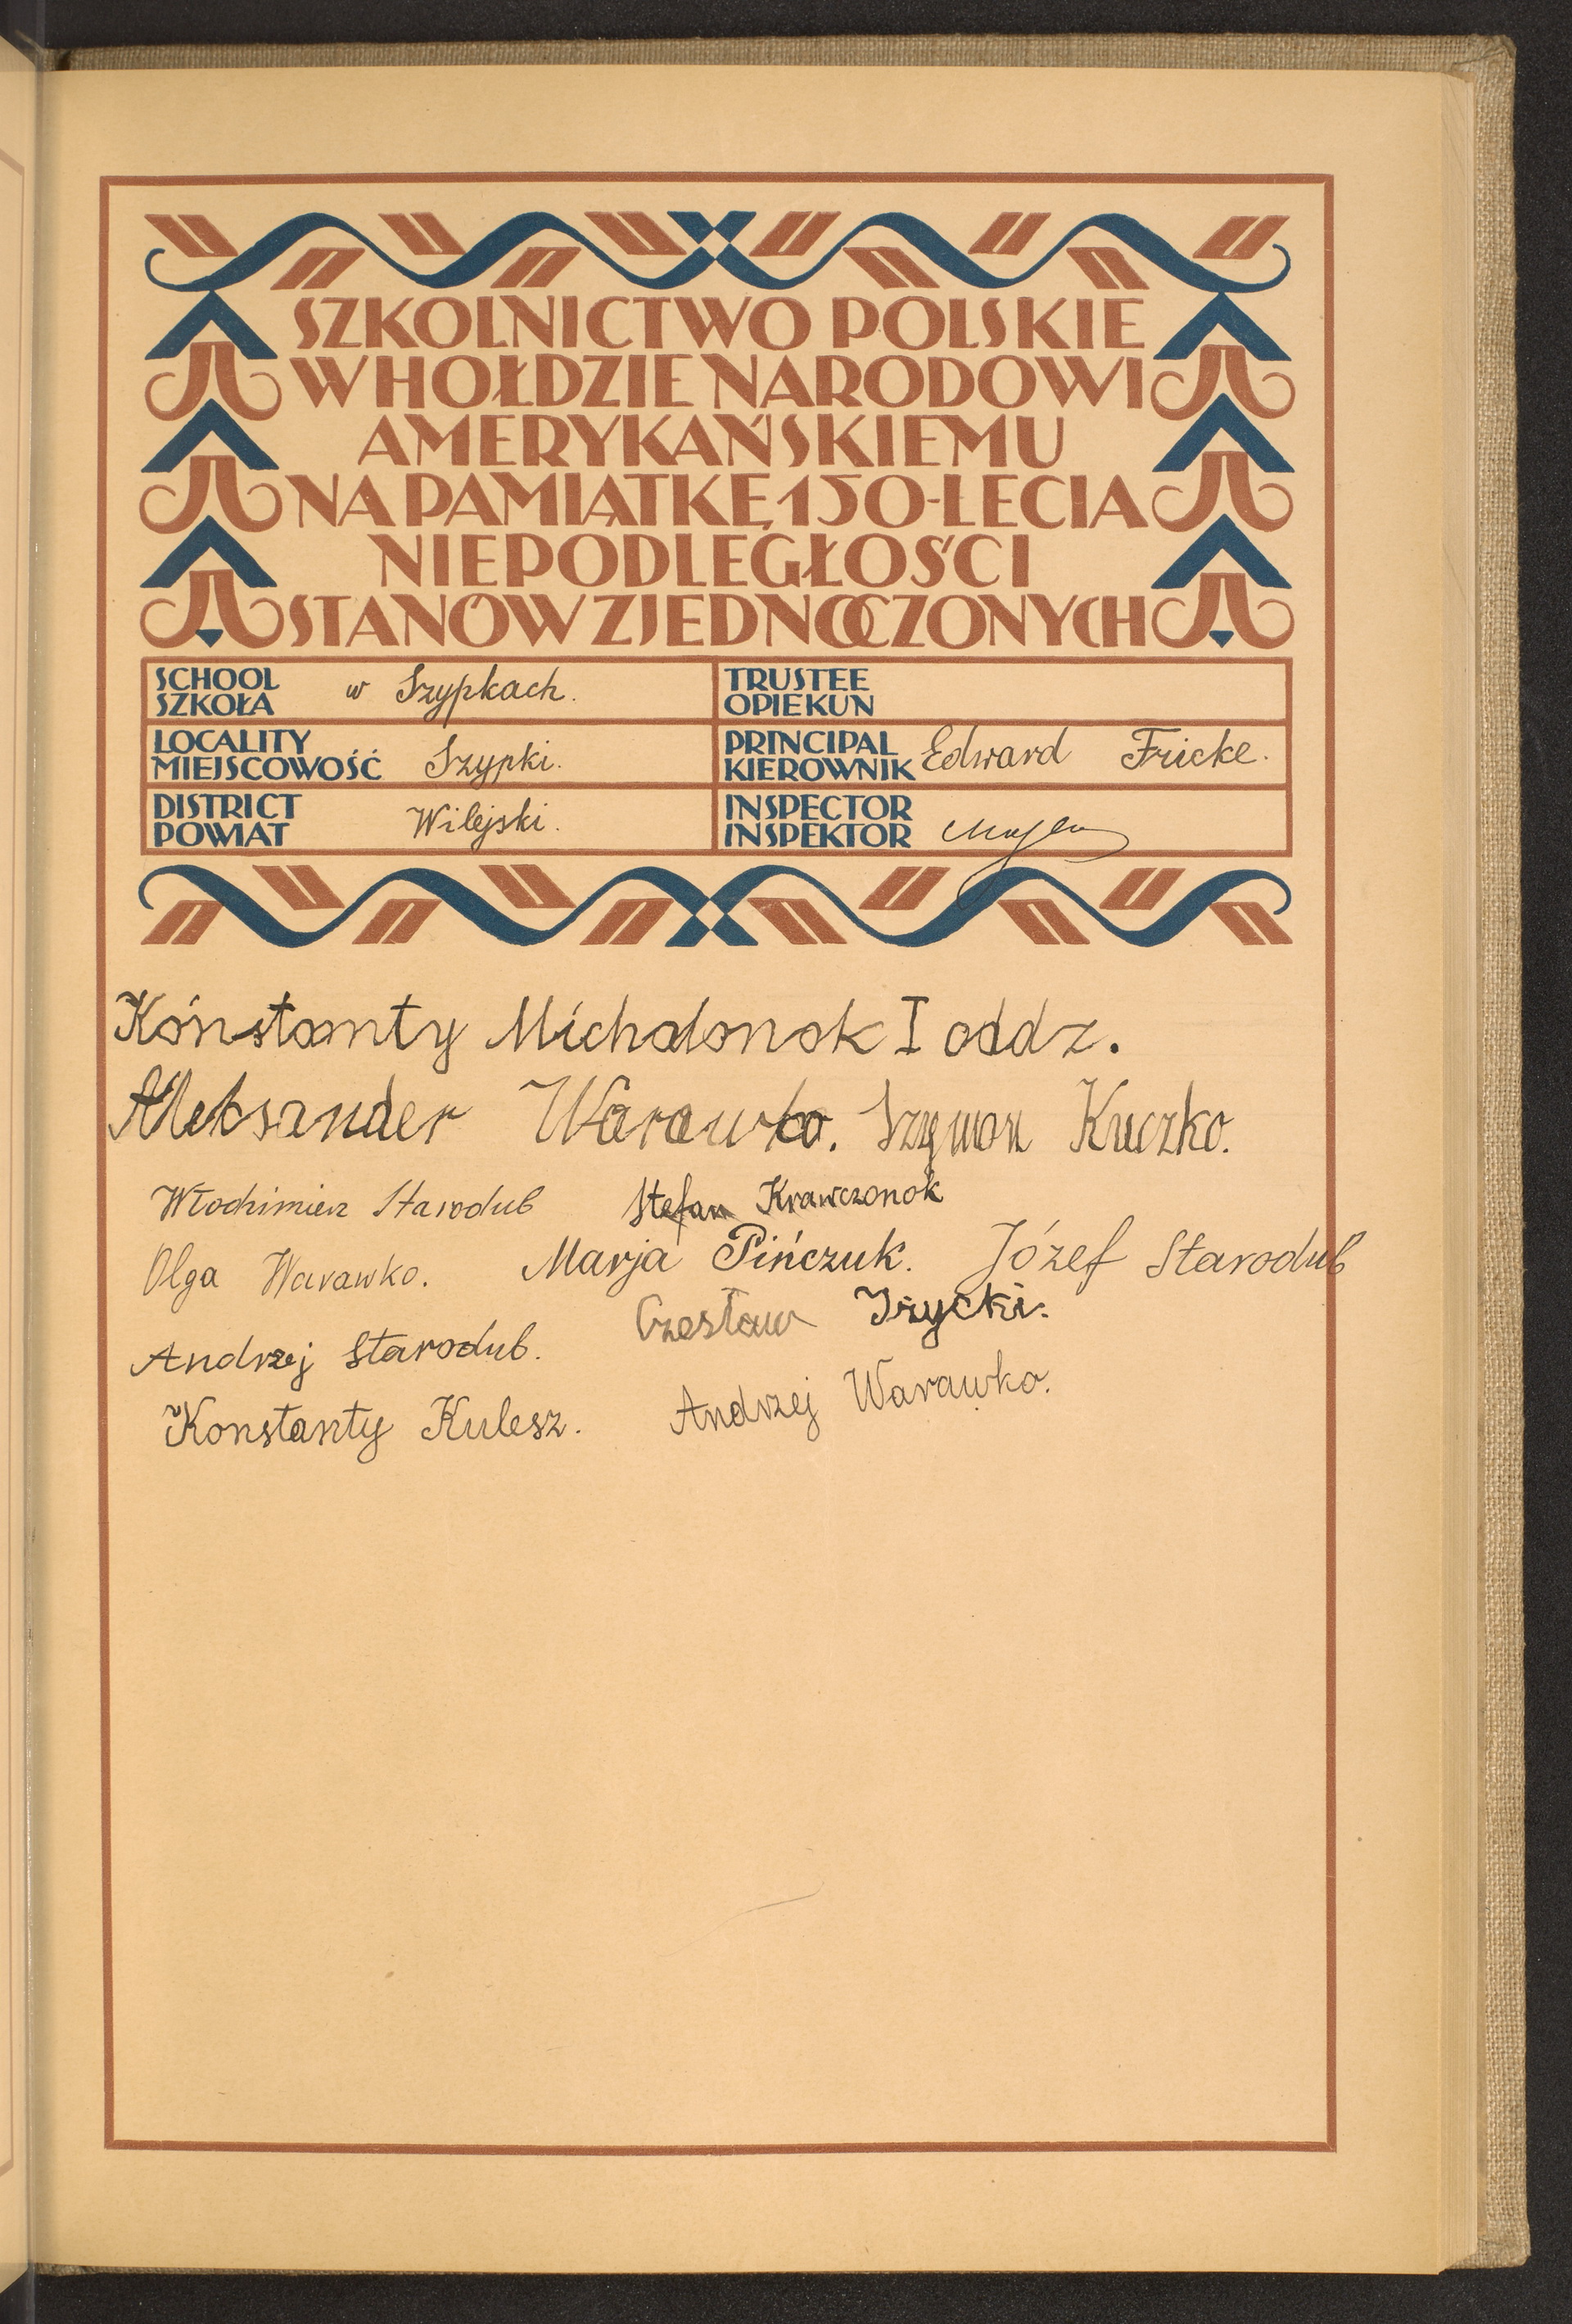 SZKOLNICTWO POLSKIE
W HOŁDZIE NARODOWI
AMERYKAŃSKIEMU
NA PAMIĄTKĘ 150-LECIA
NIEPODLEGŁOŚCI
STANÓW ZJEDNOCZONYCH
SCHOOL
SZKOŁA w Szypkach.
TRUSTEE
OPIEKUN
LOCALITY
MIEJSCOWOŚĆ Szypki.
PRINCIPAL
KIEROWNIK Edward Fricke.
DISTRICT
POWIAT Wilejski.
INSPECTOR
INSPEKTOR
Kónstanty Michalonok I oddz.
Aleksander Warawko. Szymon Kuczko.
Włodzimierz Starodub Stefan Krawczonok
Olga Warawko. Marja Pińczuk. Józef Starodub
Andrzej Starodub. Czesław Iżycki.
Konstanty Kulesz. Andrzej Warawko.